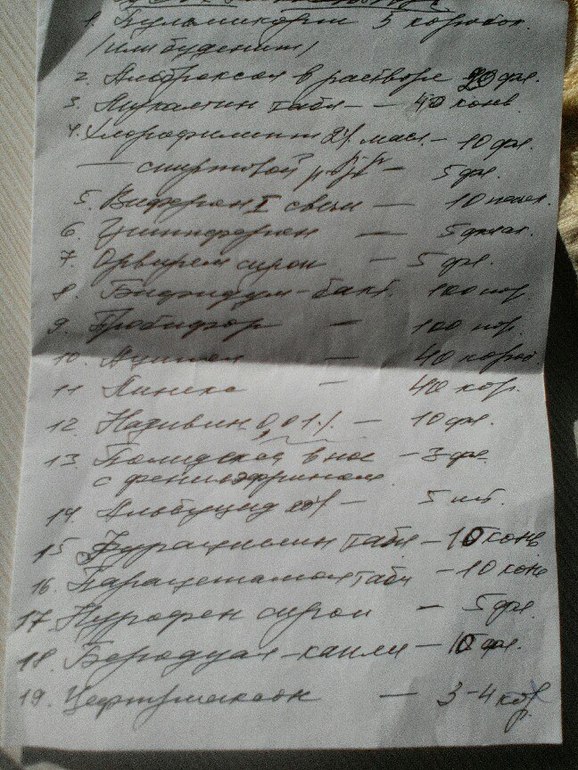 1. Пульмикорт 5 коробок
/или буденит/
2. Амброксол в растворе 20 фл.
3. Мукалтин табл — 40 конв.
4. Хлорофиллипт 2% масл. — 10 фл.
— спиртовой р-р — 5 фл.
5. Виферон I свечи — 10
6. Гриппферон — 5
7. Орвирем сироп — 5 фл.
8. Бифидум-бакт. 100
9. Пробифор — 100 пор.
10. Аципол — 40 короб
11. Линекс — 40 кор.
12. Називин 0,01% — 10 фл.
13. Полидекса в нос — 3 фл.
с фенилэфрином
14. Альбуцид 20% — 5 шт.
15 Фурацилин табл — 10 конв
16. Парацетамол табл — 10 конв
17. Нурофен сироп — 5 фл.
18. Беродуал-капли — 10 фл.
19. Цефтриаксон — 3-4 кор